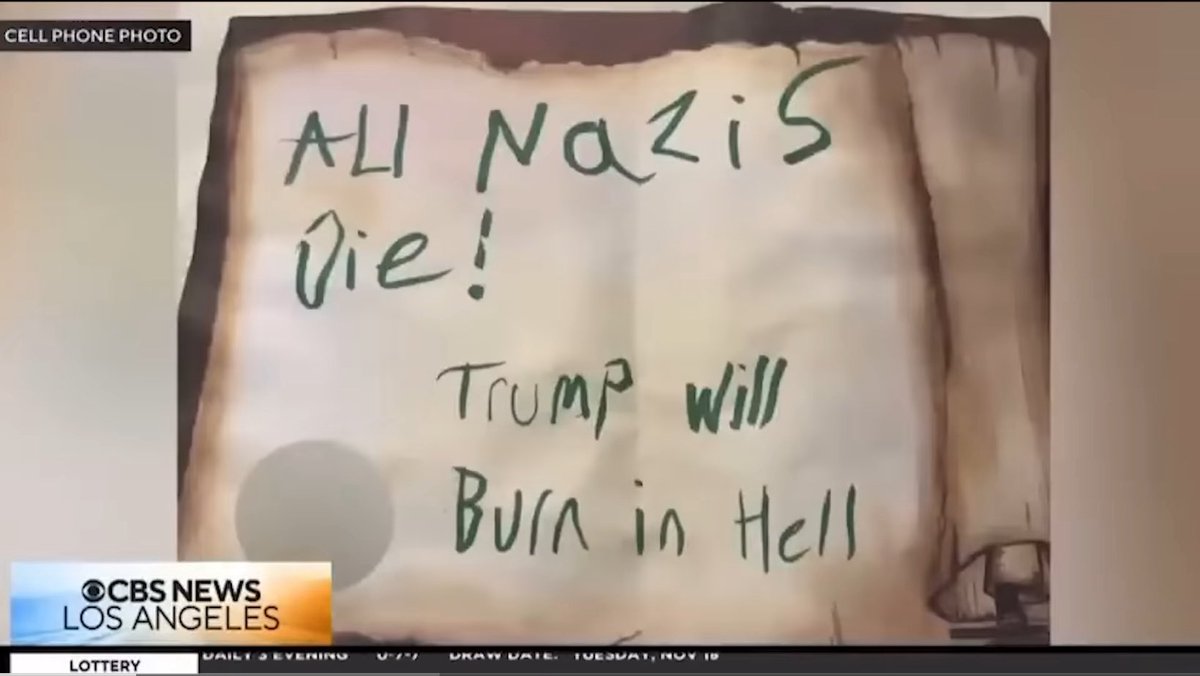 CELL PHONE PHOTO
All Nazis
Die!
Trump will
Burn in Hell
CBS NEWS
LOS ANGELES
LOTTERY
DAILY 3 EVENING 0-7-7 DRAW DATE: TUESDAY, NOV 18